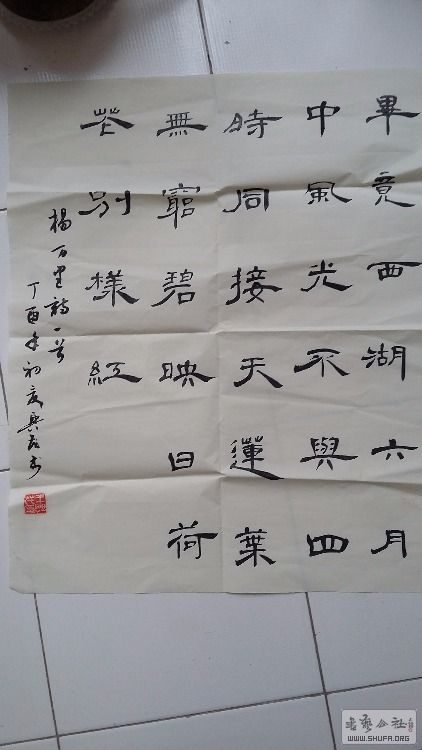 畢竟西湖六月
中風光不與四
時同接天蓮葉
無窮碧映日荷
花別樣紅
楊万里詩一首
丁酉年初夏书
书艺公社
WWW.SHUFA.ORG